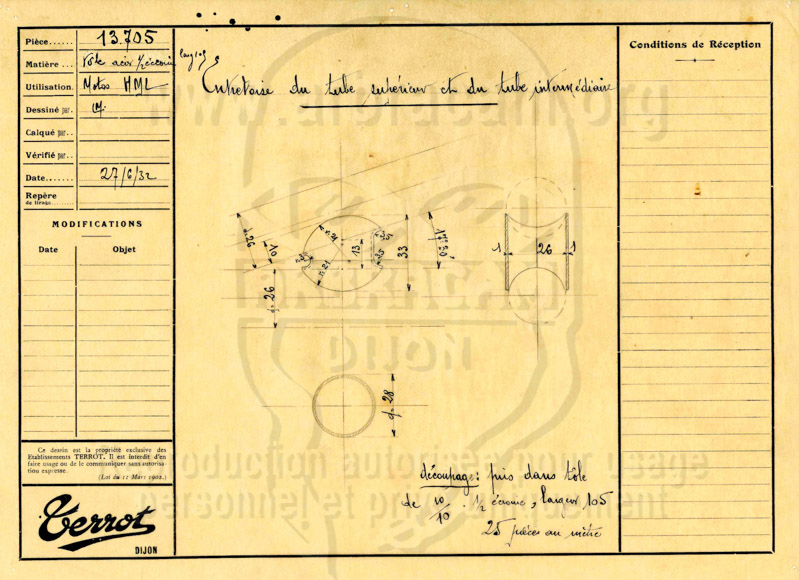 Pièce...... 13.705
Matière... Tôle acier 1/2 écroui
larg 105
Utilisation. Motos HML
Dessiné par.
Calqué par..
Vérifié par..
Date....... 27/6/32
Repère
de tirage........
MODIFICATIONS
Date Objet
Ce dessin est la propriété exclusive des
Etablissements TERROT. Il est interdit d'en
faire usage ou de le communiquer sans autorisa-
tion expresse.
(Loi du 12 Mars 1902.)
Terrot
DIJON
Entretoise du tube supérieur et du tube intermédiaire
d. 26
10
r. 21
r. 21
13
33
17°30'
d. 26
1 26 1
d. 28
découpage: pris dans tôle
de 10/10 . 1/2 écroui, largeur 105
25 pièces au mètre
Conditions de Réception
DIJON
Reproduction autorisée usage
personnel et privé seulement